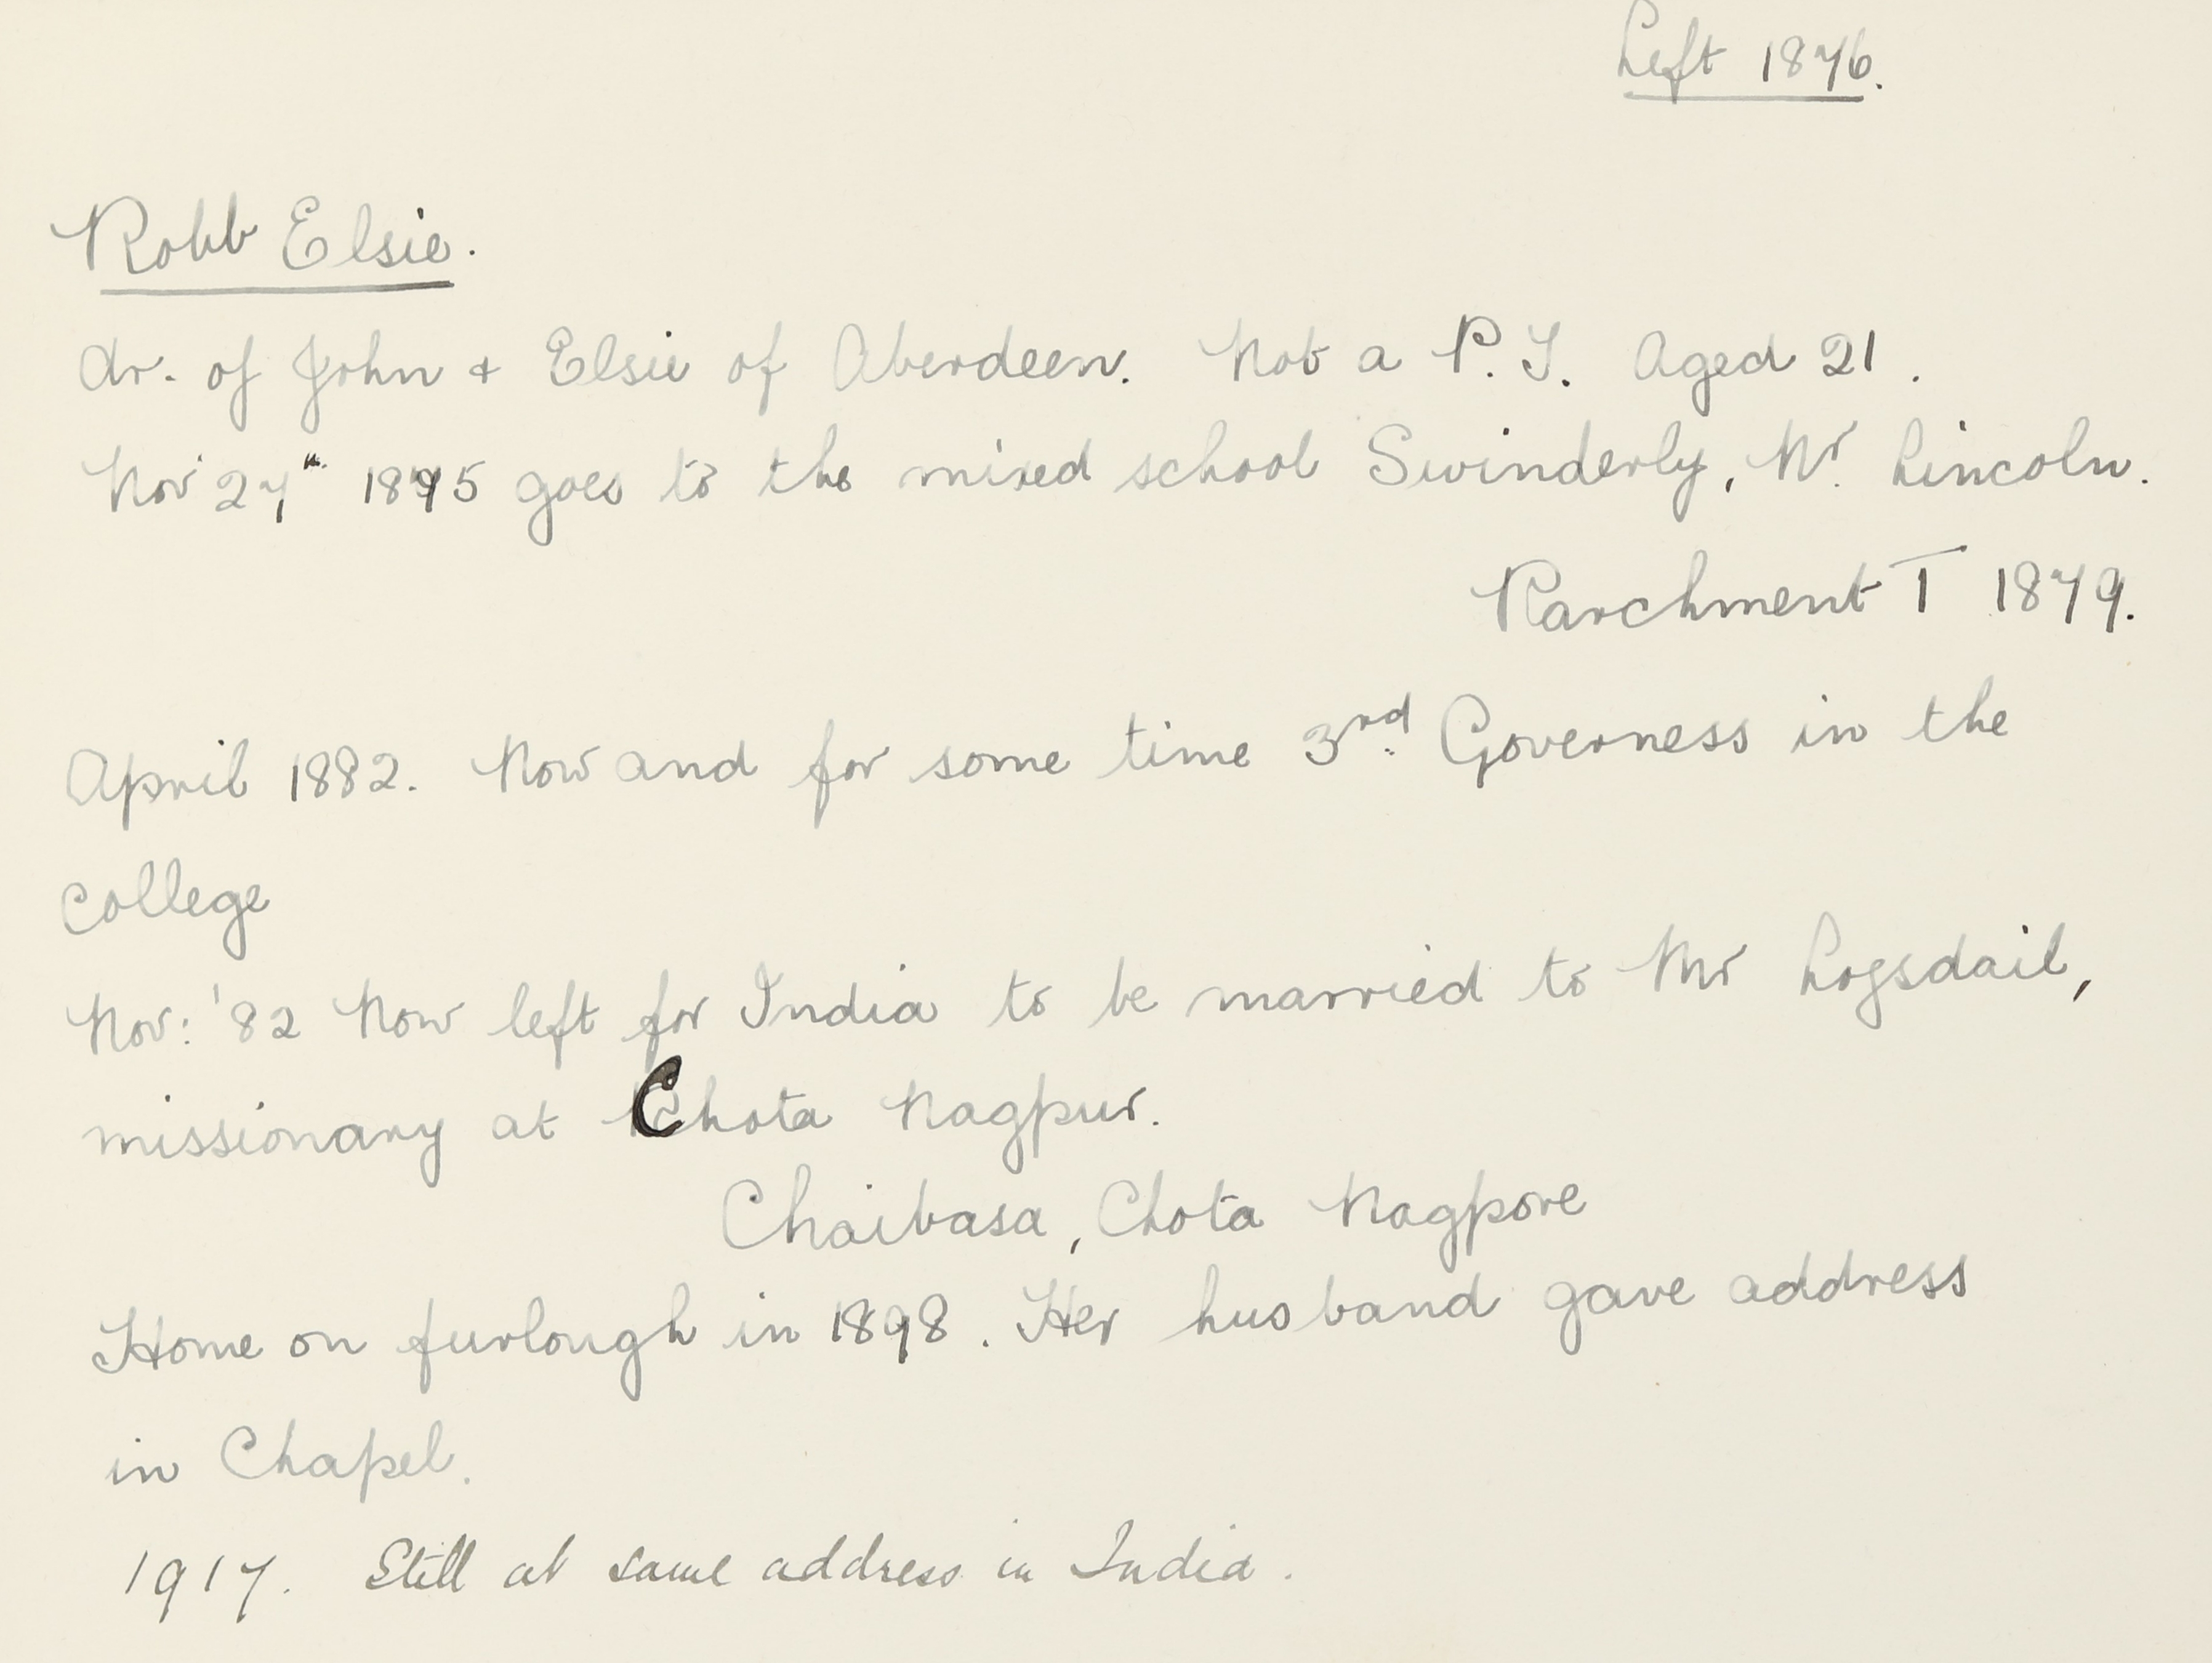 Left 1876.
Robb Elsie.
dr. of John + Elsie of Aberdeen. Not a P.T. Aged 21.
Nov 27th 1875 goes to the mixed school Swinderly, Nr. Lincoln.
Parchment T 1879.
April 1882. Now and for some time 3rd Governess in the
College
Nov: '82 Now left for India to be married to Mr Logsdail,
missionary at Chota Nagpur.
Chaibasa, Chota Nagpore
Home on furlough in 1898. Her husband gave address
in Chapel.
1917. Still at same address in India.